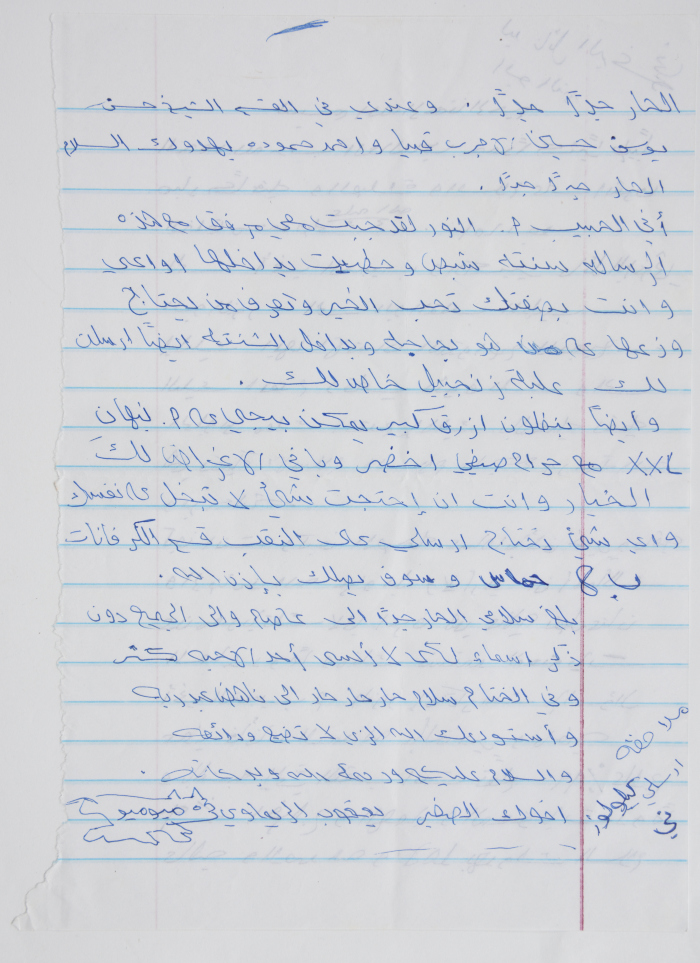 الحار جدًا جدًا . وعندي في القسم الشيخ حسن
يوسف حسين الاعرب قبها واحمد حموده يهدوك السلام
الحار جدًا جدًا .
أخي الحبيب م. النور لقد جبت معي مرفق مع هذه
الرسالة شنته شبص وحطيت بداخلها اواعي
وانت بصفتك تحب الخير وتعرف من يحتاج
وزعها ع من هو بحاجه وبداخل الشنته ايضًا ارسلت
لك علبة زنجبيل خاص لك .
وأيضًا بنطلون ازرق كبير يمكن ييجي ع م. نهان
XXL مع حرام صيفي اخضر وباقي الاغراض لك
الخيار وانت ان إحتجت شيئ لا تبخل ع نفسك
واي شيئ تحتاج ارسلي على النقب قسم الكرفانات
ب 8 حماس وسوف يصلك بإذن الله .
بلغ سلامي الحار جدًا الى عاصم والى الجميع دون
ذكر اسماء لأني لا أنسى أحد الاحبه كثر
وفي الختام سلام حار حار حار الى
وأستودعك الله الذي لا تضيع ودائعه
والسلام عليكم ورحمة الله وبركاته .
اخوك الصغير يعقوب
ملاحظه
ارسلي
في